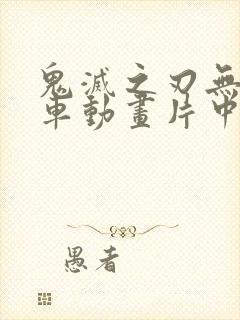 鬼滅之刃無
車動畫片中
愚者